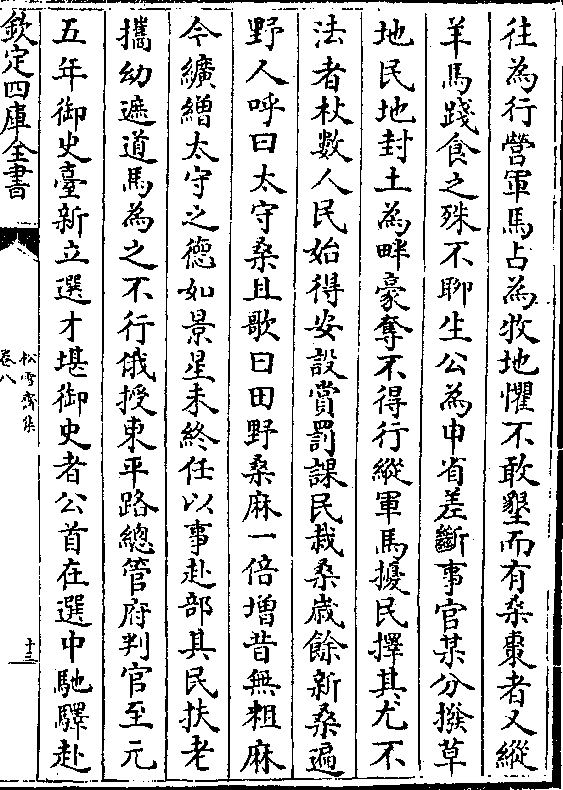 往為行營軍馬占為牧地懼不敢墾而有桑棗者又縱
羊馬踐食之殊不聊生公為申省差斷事官某分撥草
地民地封土為畔豪奪不得行縱軍馬擾民擇其尤不
法者杖數人民始得安設賞罰課民栽桑歲餘新桑遍
野人呼曰太守桑且歌曰田野桑麻一倍增昔無粗麻
今纊繒太守之德如景星未終任以事赴部其民扶老
攜幼遮道馬為之不行俄授東平路總管府判官至元
五年御史臺新立選才堪御史者公首在選中馳驛赴
欽定四庫全書
松雪齋集
卷八
十三